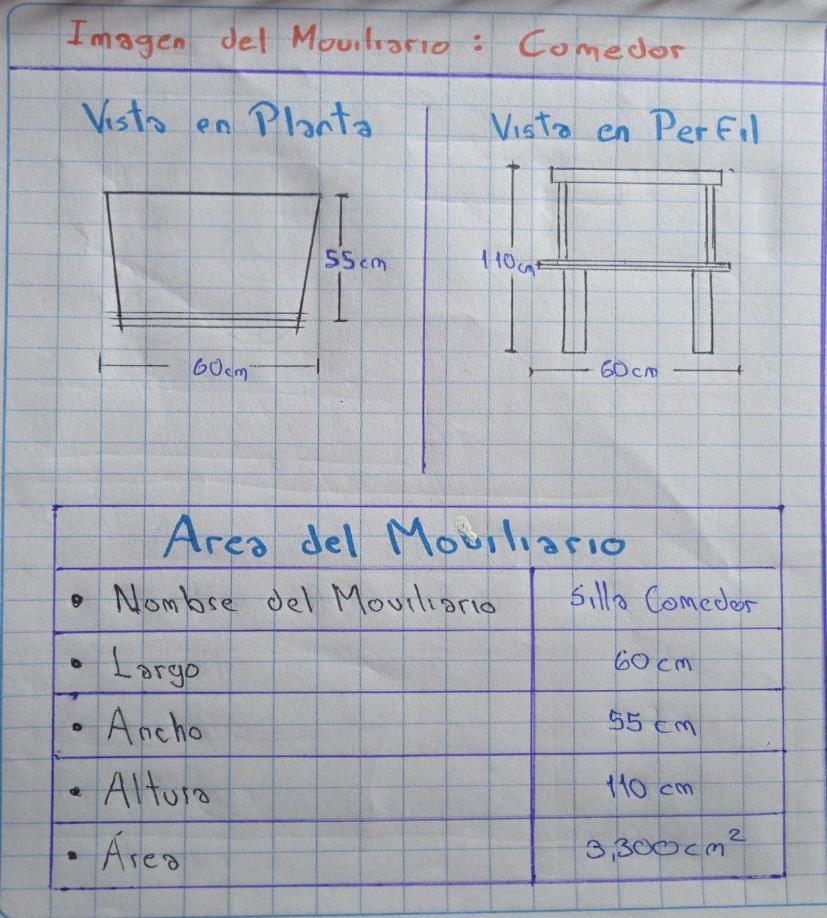 Imagen del Mouiliario : Comedor
Vista en Planta
Vista en Perfil
55cm
60cm
110cm
60cm
Area del Mouiliario
• Nombre del Mouiliario
Silla Comedor
• Largo
60 cm
• Ancho
55 cm
• Altura
110 cm
• Área
3,300cm²